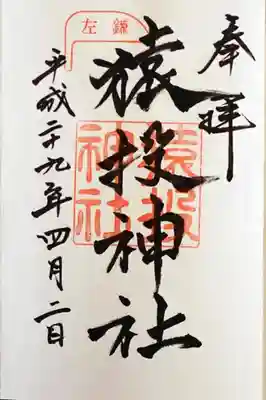 奉拝
猿投神社
平成二十九年四月二日
左鎌
猿投神社